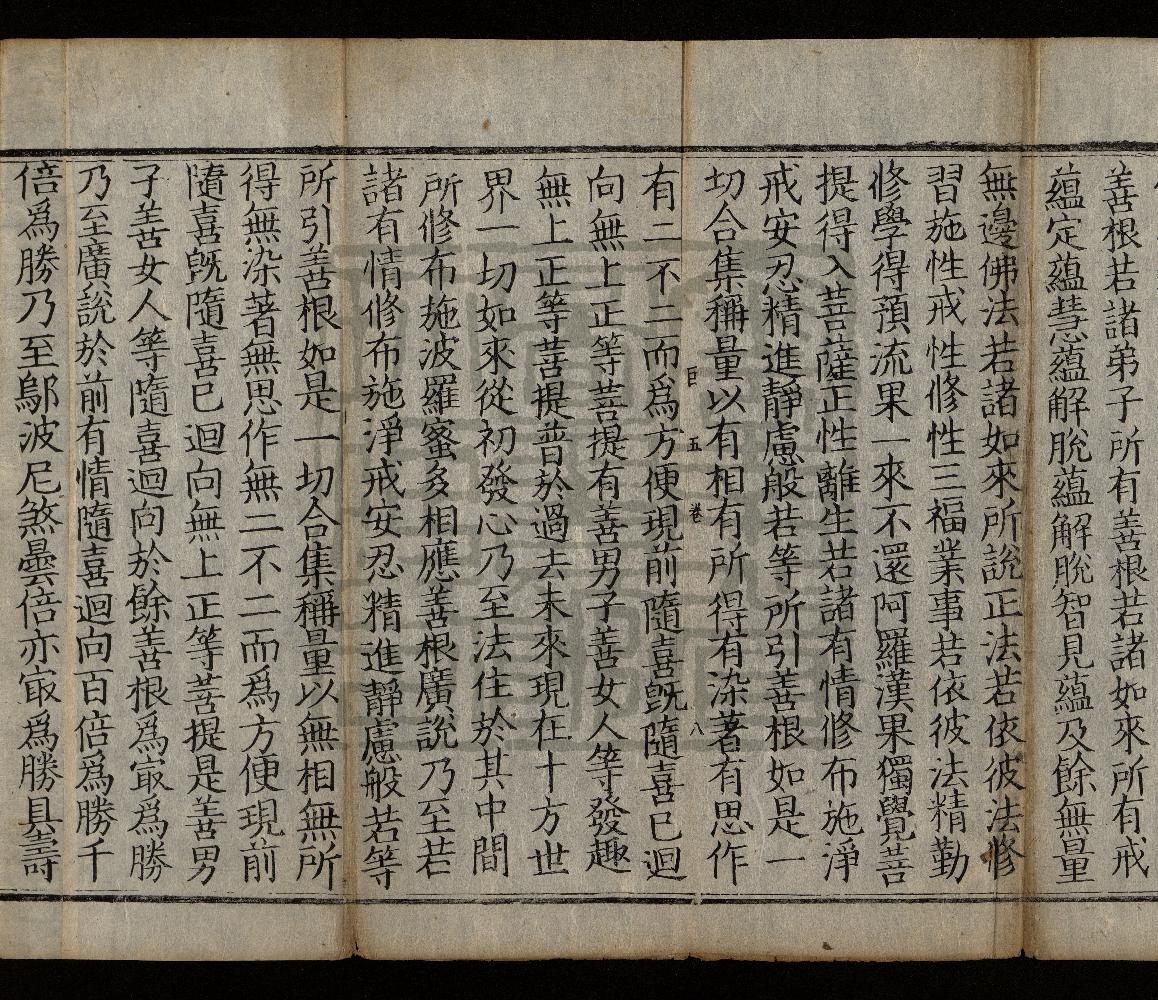 善根若諸弟子所有善根若諸如來所有戒
蘊定蘊慧蘊解脫蘊解脫智見蘊及餘無量
無邊佛法若諸如來所說正法若依彼法修
習施性戒性修性三福業事若依彼法精勤
修學得預流果一來不還阿羅漢果獨覺菩
提得入菩薩正性離生若諸有情修布施淨
戒安忍精進靜慮般若等所引善根如是一
切合集稱量以有相有所得有染著有思作
巨 五 卷 八
有二不二而爲方便現前隨喜旣隨喜已迴
向無上正等菩提有善男子善女人等發趣
無上正等菩提普於過去未來現在十方世
界一切如來從初發心乃至法住於其中間
所修布施波羅蜜多相應善根廣說乃至若
諸有情修布施淨戒安忍精進靜慮般若等
所引善根如是一切合集稱量以無相無所
得無染著無思作無二不二而爲方便現前
隨喜旣隨喜已迴向無上正等菩提是善男
子善女人等隨喜迴向於餘善根爲㝡爲勝
乃至廣說於前有情隨喜迴向百倍爲勝千
倍爲勝乃至鄔波尼煞曇倍亦㝡爲勝具壽